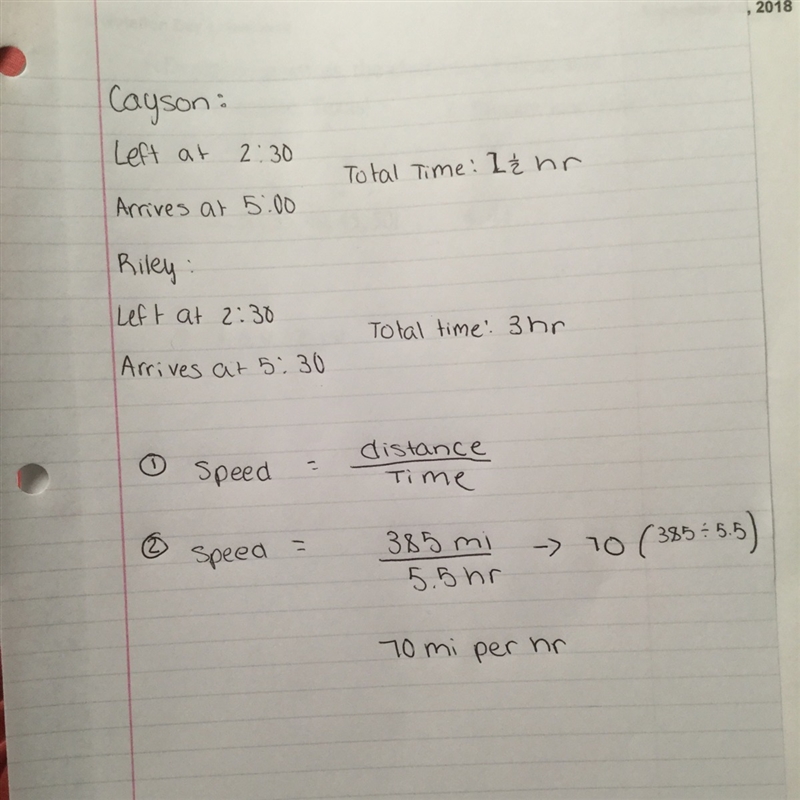 , 2018
Cayson:
Left at 2:30
Total Time: 1½ hr
Arrives at 5:00
Riley:
Left at 2:30
Total time: 3hr
Arrives at 5:30
① Speed = distance / Time
② Speed = 385 mi / 5.5 hr → 70 (385 ÷ 5.5)
70 mi per hr